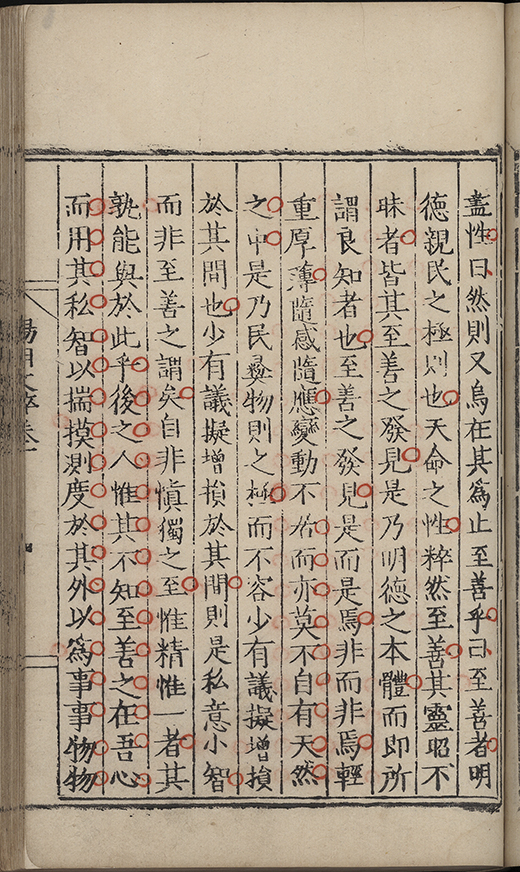 盡性曰然則又烏在其爲止至善乎曰至善者明
德親民之極則也天命之性粹然至善其靈昭不
昧者皆其至善之發見是乃明德之本體而即所
謂良知者也至善之發見是而是焉非而非焉輕
重厚薄隨感隨應變動不居而亦莫不自有天然
之中是乃民彝物則之極而不容少有議擬增損
於其間也少有議擬增損於其間則是私意小智
而非至善之謂矣自非愼獨之至惟精惟一者其
孰能與於此乎後之人惟其不知至善之在吾心
而用其私智以揣摸測度於其外以爲事事物物
陽明文粹卷一
四